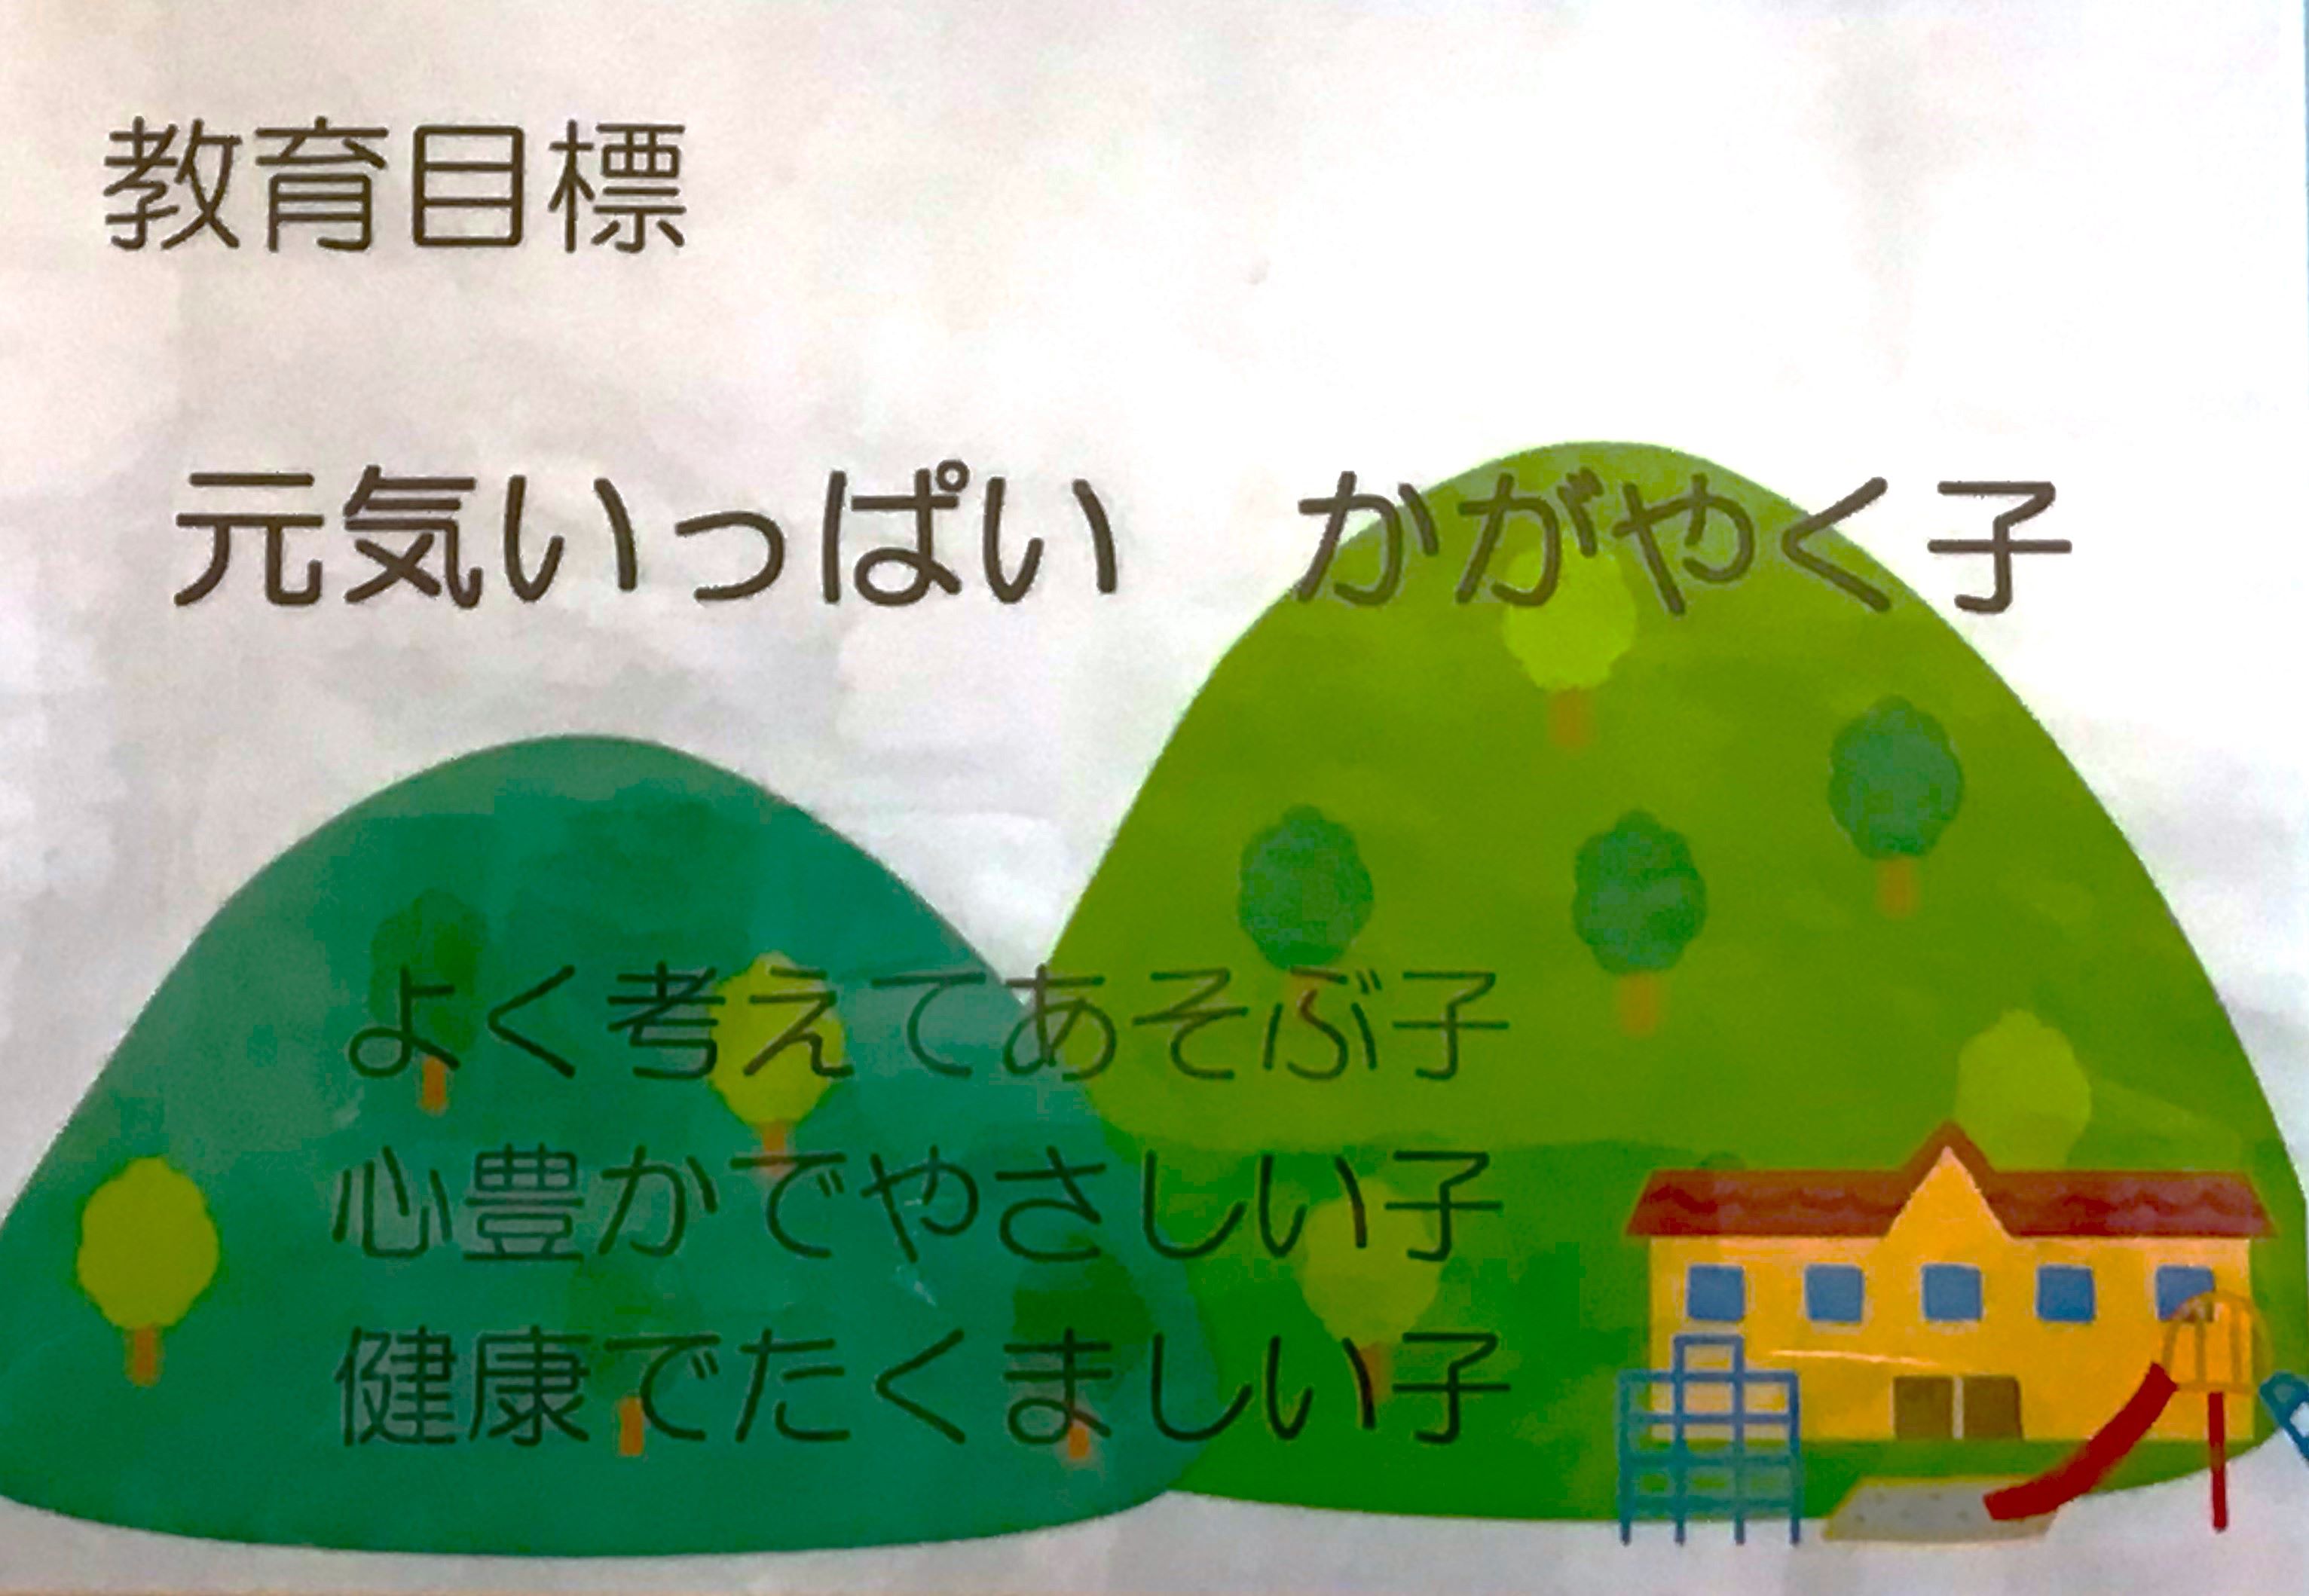 教育目標
元気いっぱい　かがやく子
よく考えてあそぶ子
心豊かでやさしい子
健康でたくましい子